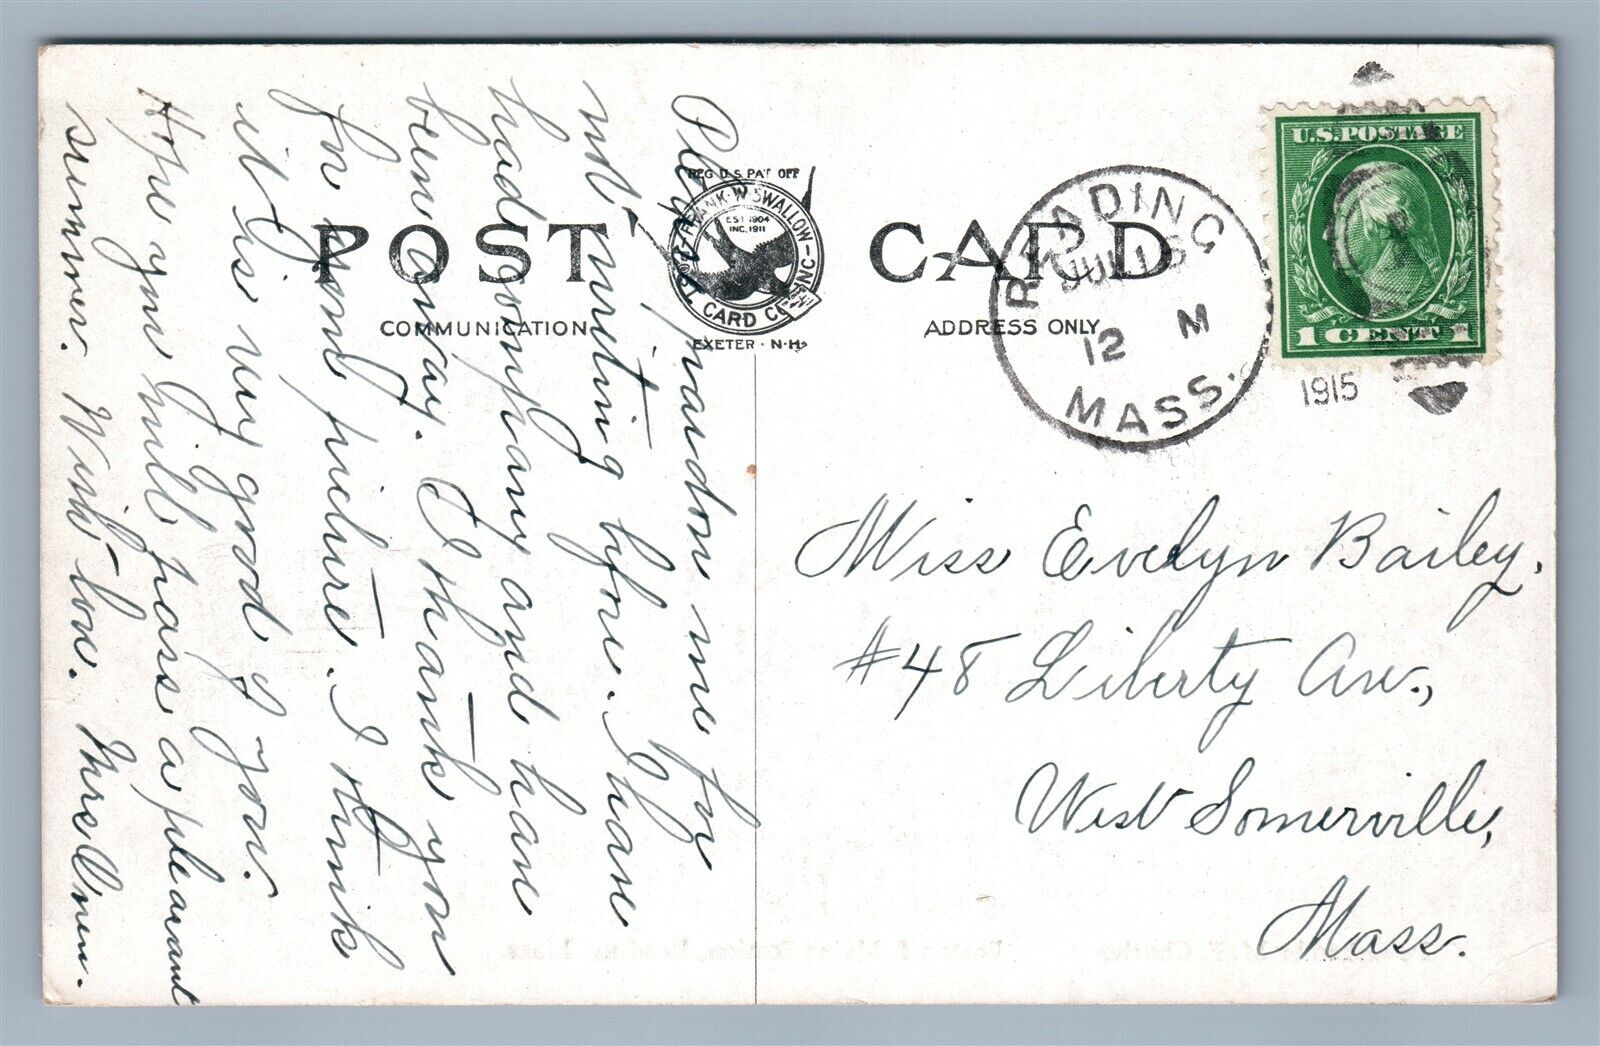 POST CARD
COMMUNICATION
ADDRESS ONLY
REG U.S. PAT OFF
FRANK·W·SWALLOW
EST 1904
INC. 1911
POST CARD CO INC
EXETER · N·H·
READING
JUL 16
12 M
MASS.
1915
U.S. POSTAGE
1 CENT 1
Please pardon me for
not writing before. I have
had company and have
been away. I thank you
for your picture. I think
it is very good of you.
Hope you will pass a pleasant
summer. With love. Mrs Owen.
Miss Evelyn Bailey.
#48 Liberty Ave.,
West Somerville,
Mass.